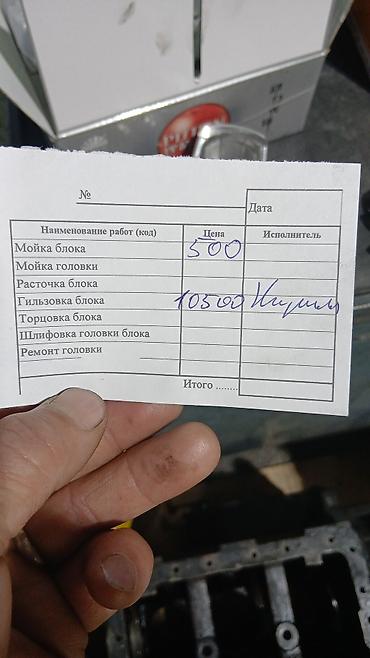 №
Дата
Наименование работ (код) Цена Исполнитель
Мойка блока 500
Мойка головки
Расточка блока
Гильзовка блока 10500
Торцовка блока
Шлифовка головки блока
Ремонт головки
Итого ........